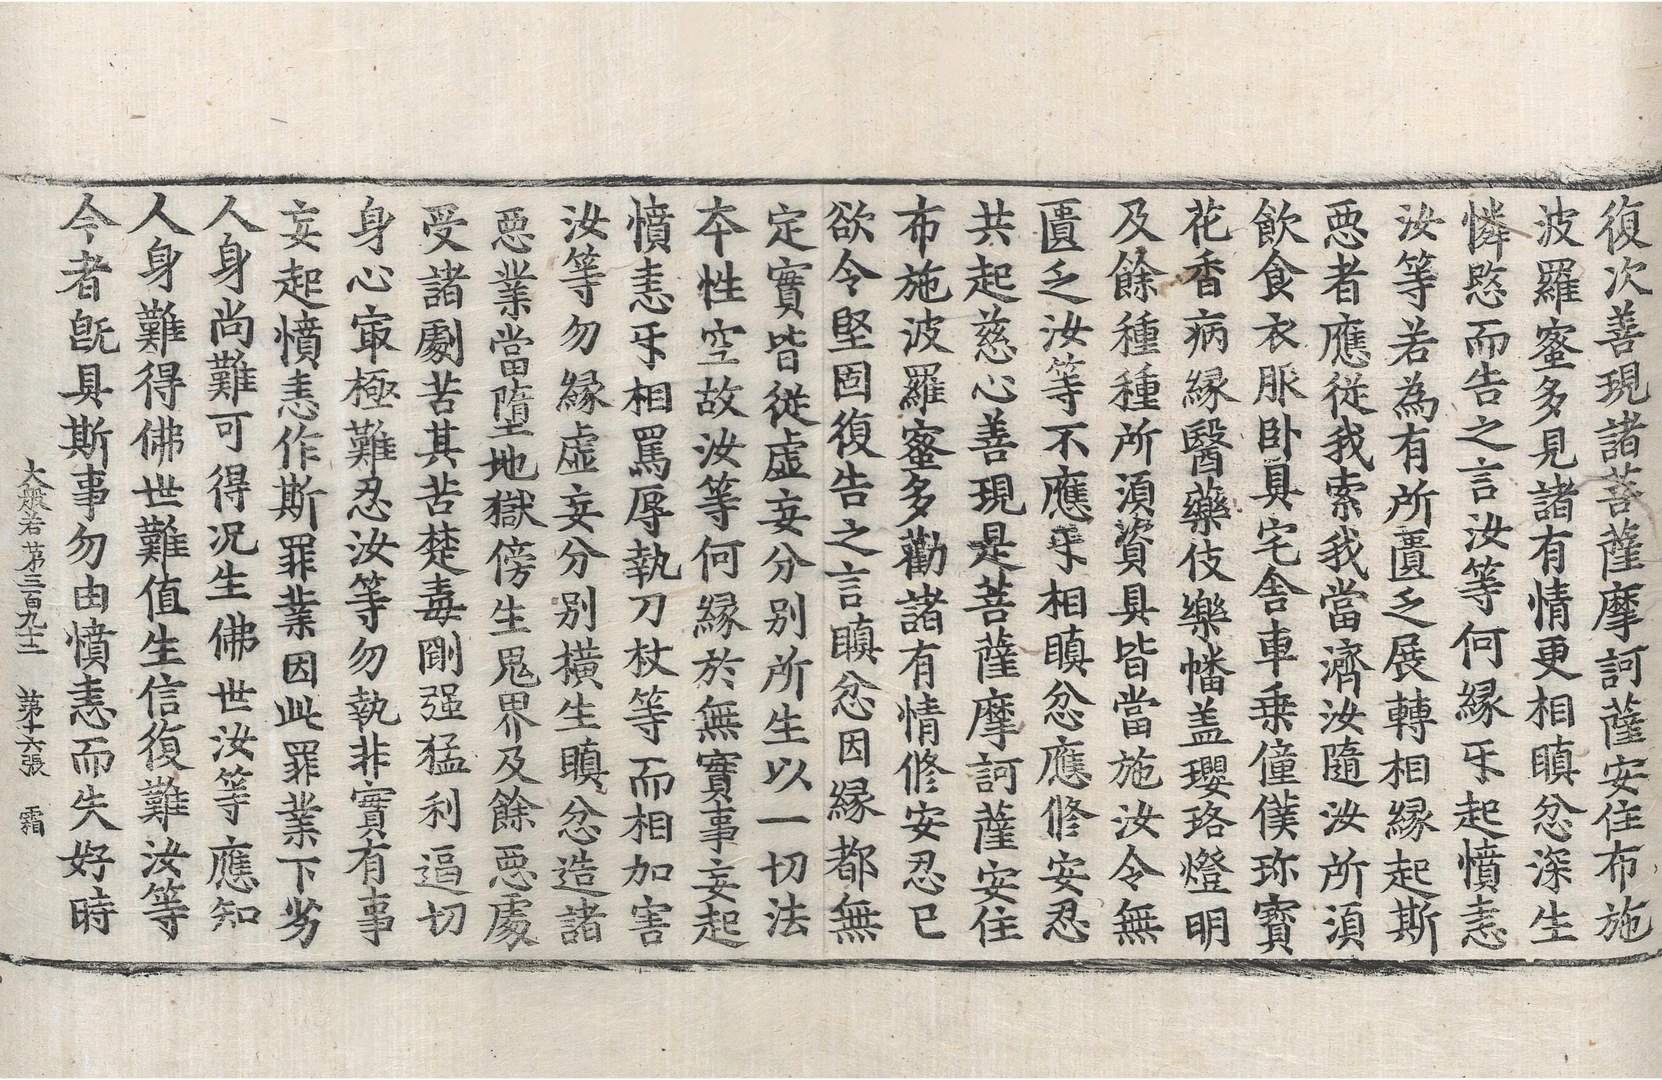 復次善現諸菩薩摩訶薩安住布施
波羅蜜多見諸有情更相瞋忿深生
憐愍而告之言汝等何縁㸦起憤恚
汝等若為有所匱乏展轉相縁起斯
惡者應從我索我當濟汝隨汝所湏
飲食衣服卧具宅舍車乗僮僕珎寶
花香病縁醫藥伎樂幡盖瓔珞燈明
及餘種種所湏資具皆當施汝令無
匱乏汝等不應㸦相瞋忿應修安忍
共起慈心善現是菩薩摩訶薩安住
布施波羅蜜多勸諸有情修安忍已
欲令堅固復告之言瞋忿因縁都無
定實皆從虛妄分别所生以一切法
本性空故汝等何縁於無實事妄起
憤恚㸦相罵辱執刀杖等而相加害
汝等勿縁虛妄分别橫生瞋忿造諸
惡業當墮地獄傍生鬼界及餘惡處
受諸劇苦其苦楚毒剛强猛利逼切
身心㝡極難忍汝等勿執非實有事
妄起憤恚作斯罪業因此罪業下劣
人身尚難可得況生佛世汝等應知
人身難得佛世難值生信復難汝等
今者旣具斯事勿由憤恚而失好時
大般若第三百九十二 第十六張 霜